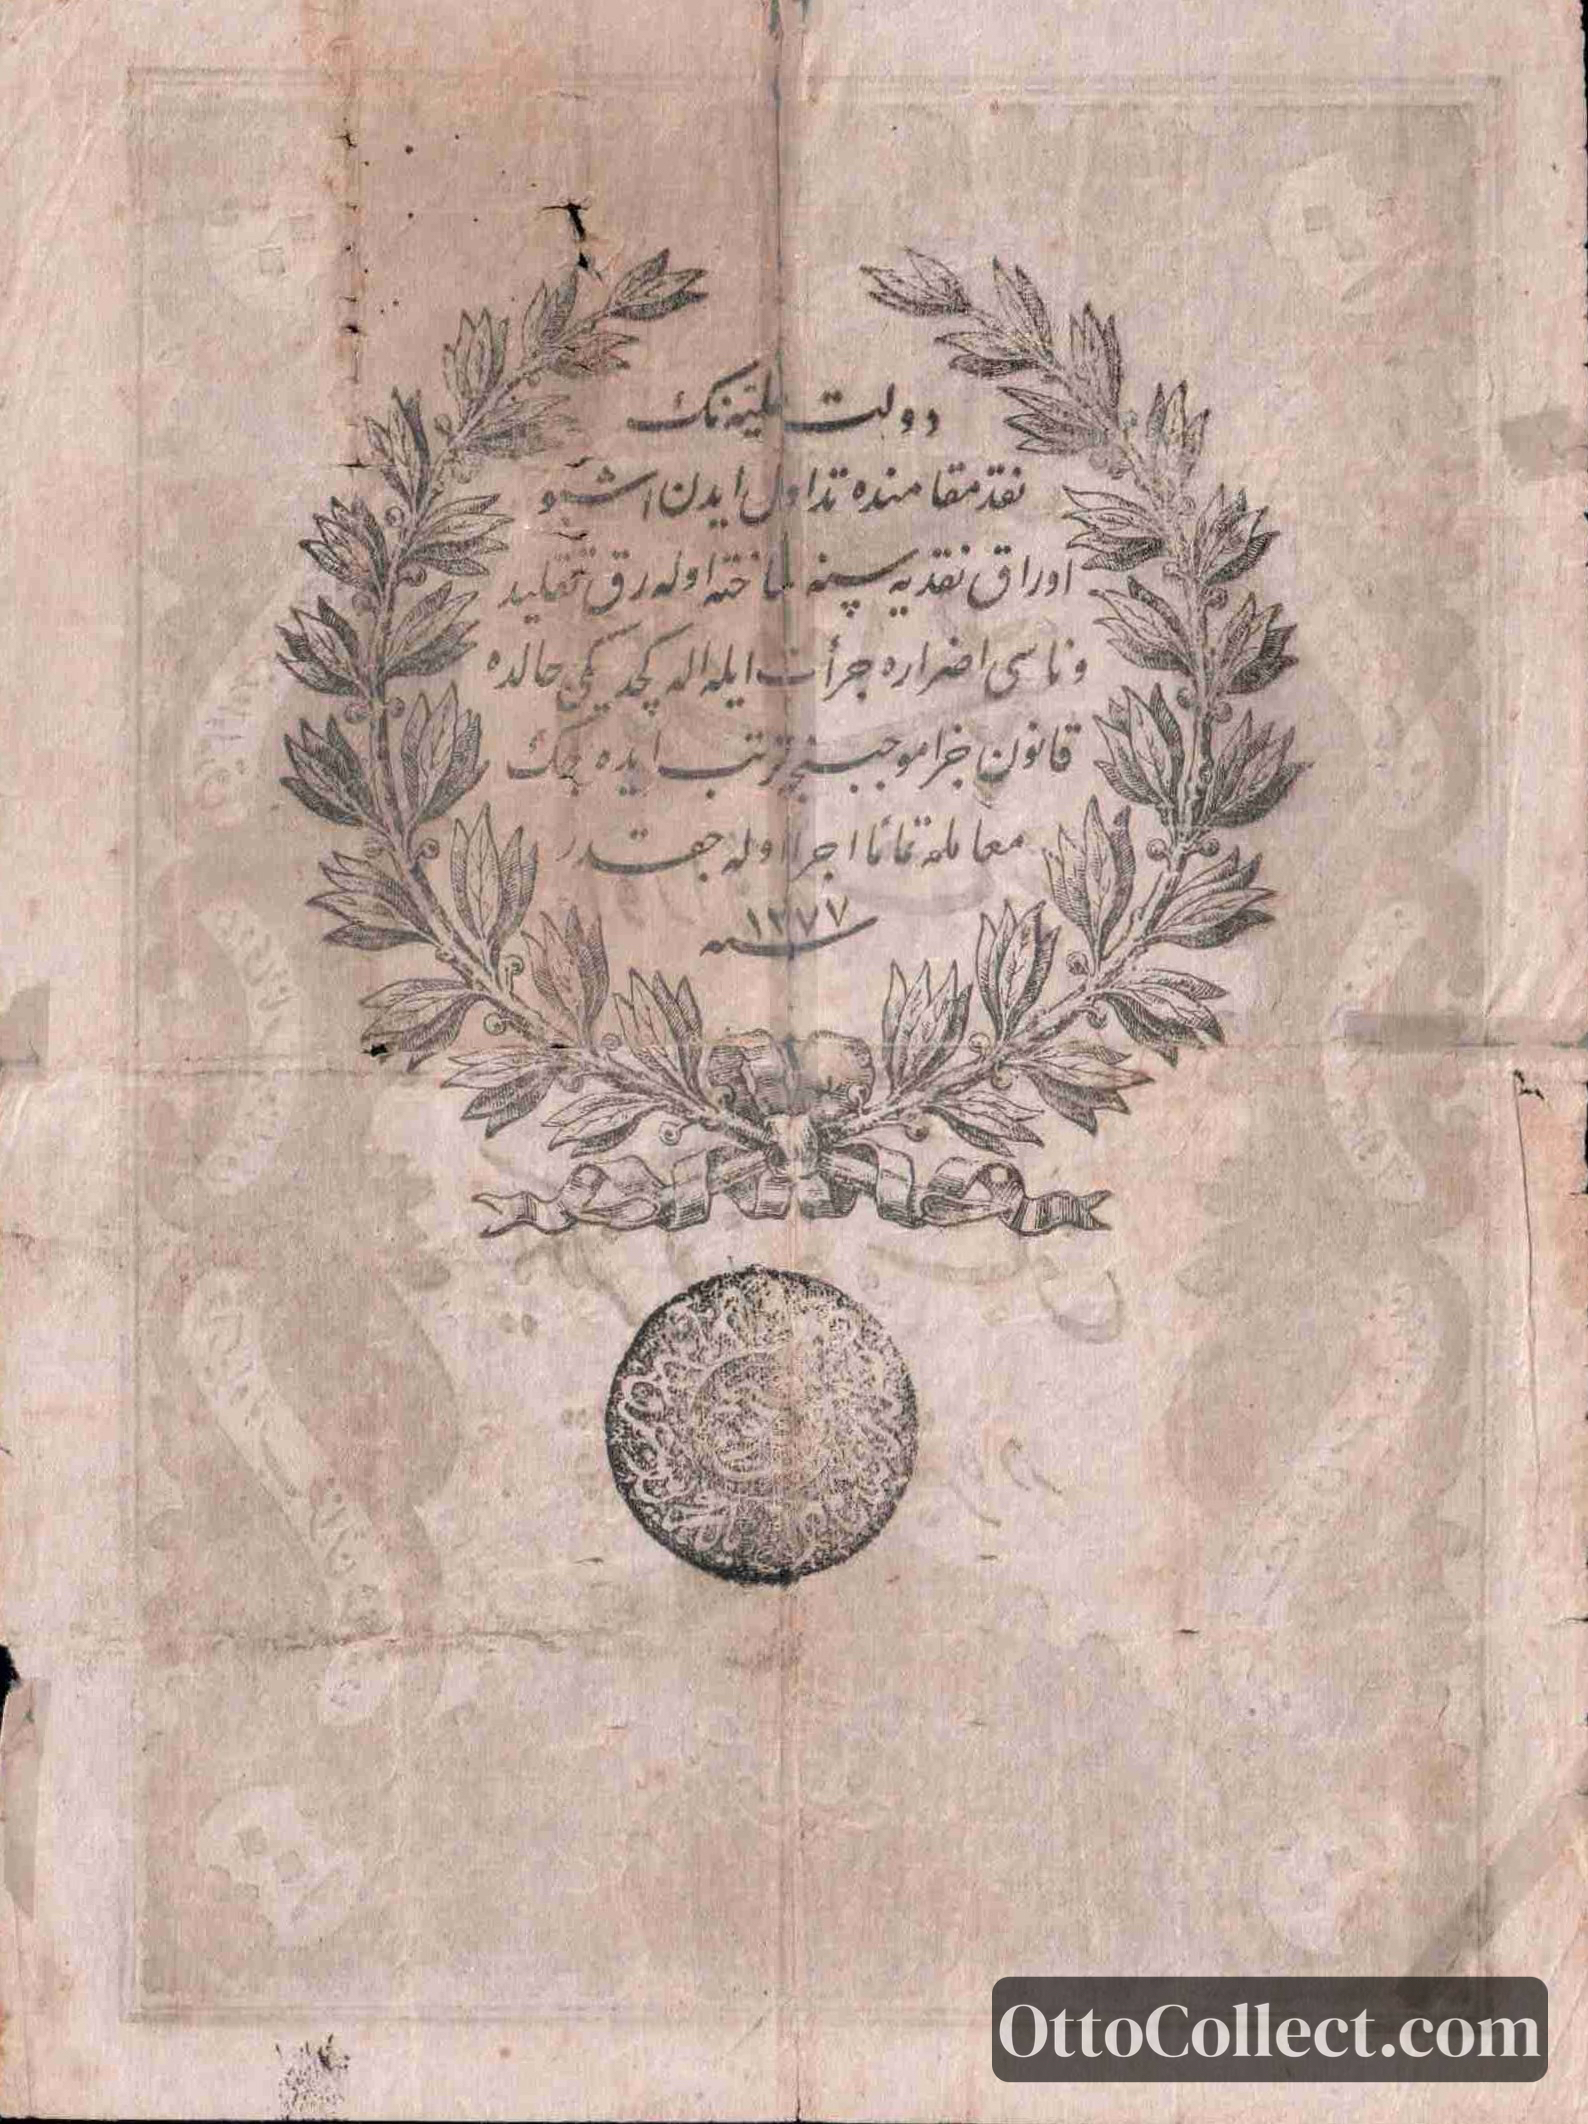 دولت علیه نك
نقد مقامنده تداول ایدن اشبو
اوراق نقدیه سنه ساخته اوله رق تقلید
و ناسی اضراره جرأت ایله اله كچدیكی حالده
قانون جزا موجبنجه ترتب ایده جك
معامله تمامًا اجرا اوله جقدر
سنه ١٢٧٧
OttoCollect.com